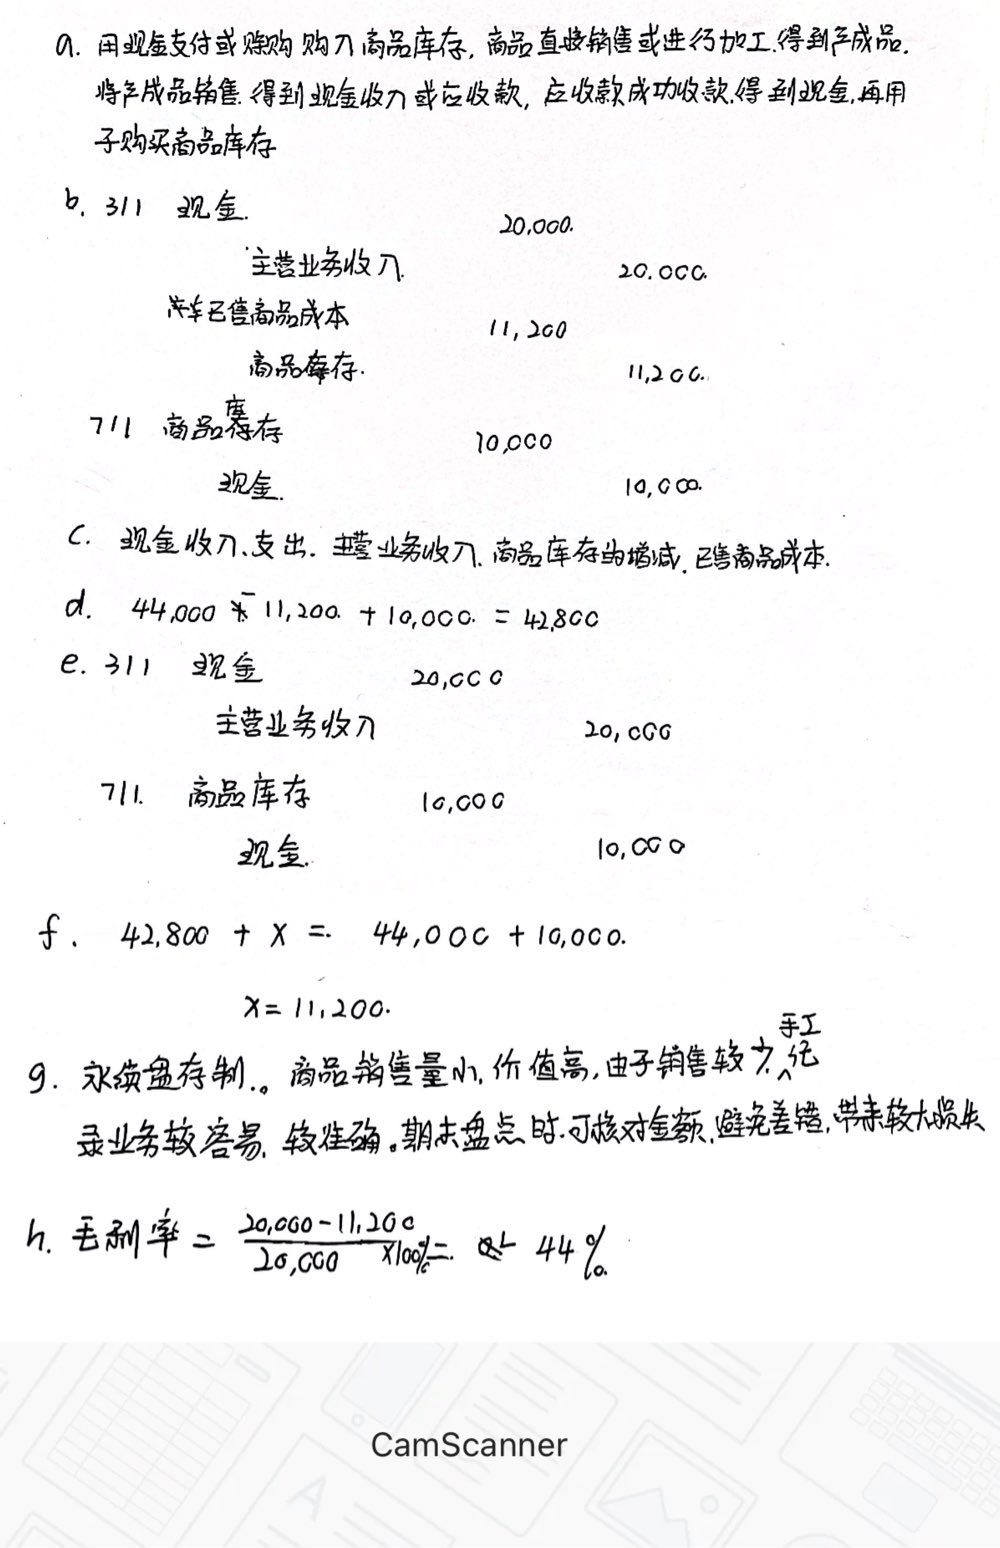 a. 用现金支付或赊购购入商品库存, 商品直接销售或进行加工.得到产成品.
将产成品销售.得到现金收入或应收款, 应收款成功收款.得到现金.再用
于购买商品库存
b. 311 现金. 20,000.
主营业务收入. 20.000.
已售商品成本 11,200
商品库存. 11,200.
711 商品库存 10,000
现金. 10,000.
C. 现金收入、支出. 主营业务收入. 商品库存的增减. 已售商品成本.
d. 44,000 - 11,200. + 10,000. = 42,800
e. 311 现金 20,000
主营业务收入 20,000
711. 商品库存 10,000
现金. 10,000
f. 42,800 + x = 44,000 + 10,000.
x = 11,200.
g. 永续盘存制.。商品销售量小, 价值高, 由于销售较少.手工记
录业务较容易, 较准确。期末盘点时.可核对金额,避免差错,带来较大损失
h. 毛利率 = 20,000-11,200 / 20,000 ×100% = 44%.
CamScanner